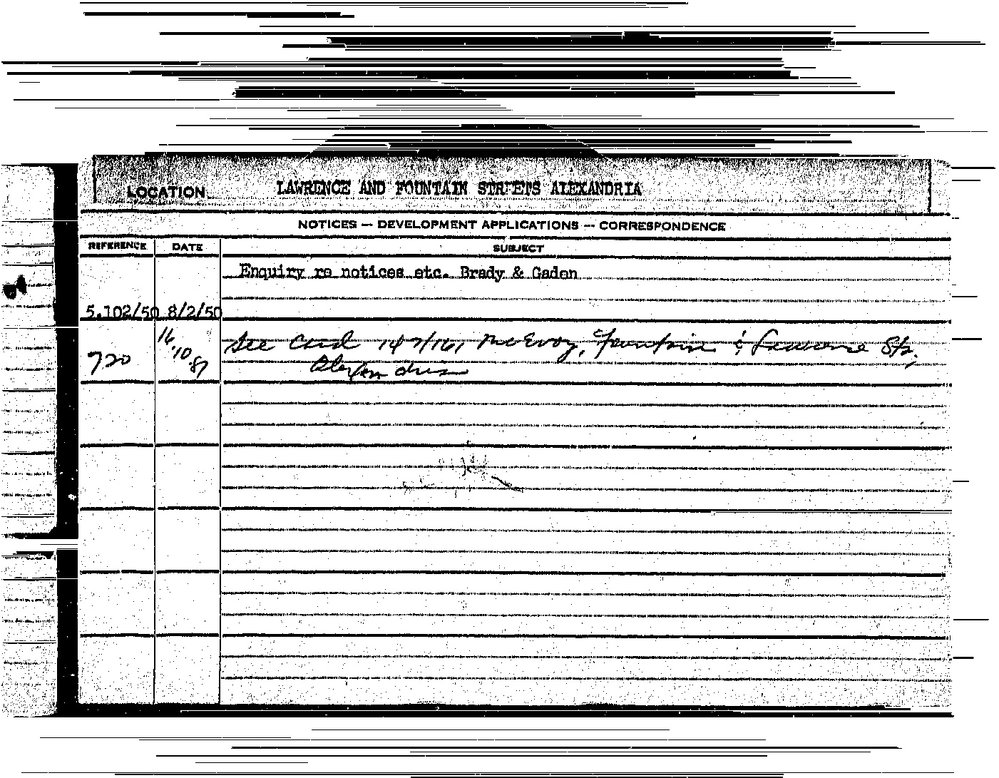 LOCATION LAWRENCE AND FOUNTAIN STREETS ALEXANDRIA
NOTICES — DEVELOPMENT APPLICATIONS — CORRESPONDENCE
REFERENCE DATE SUBJECT
Enquiry re notices etc. Brady & Gaden
5.102/50 8/2/50
720 16.10. See Card McEvoy, Fountain & Lawrence Sts.
Alexandria